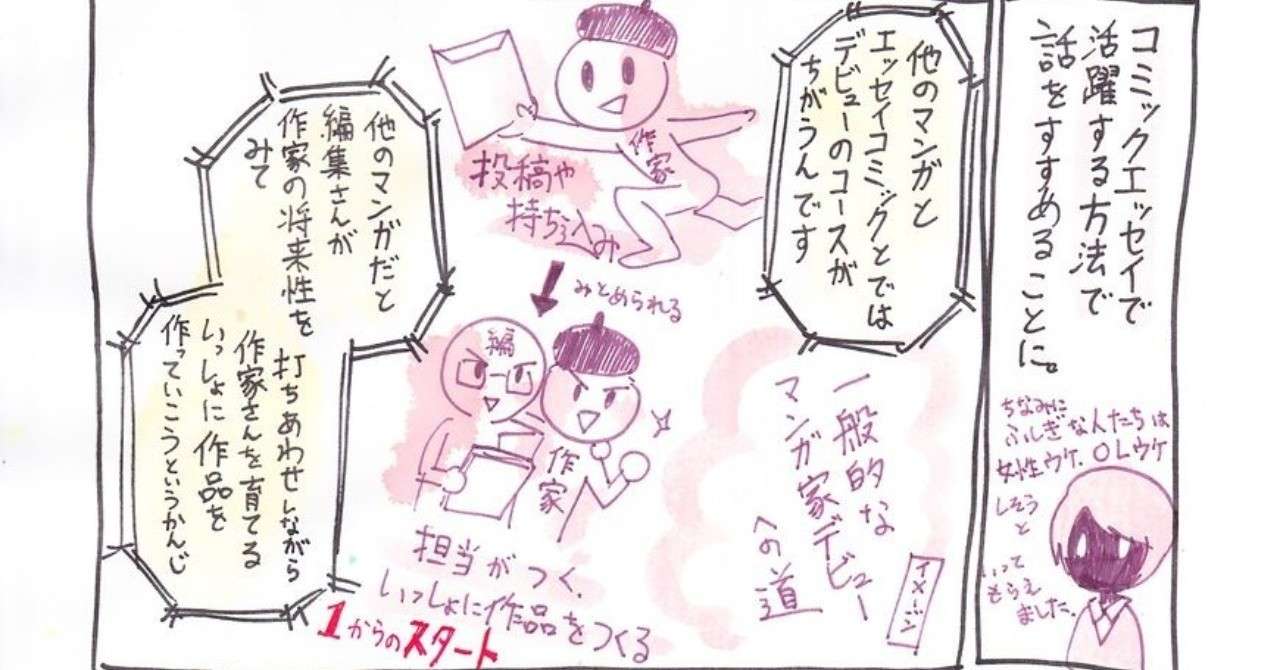 コミックエッセイで
活躍する方法で
話をすすめることに。
ちなみに
ふしぎな人たちは
女性ウケ、OLウケ
しそう
と
いって
もらえ
ました。
他のマンガと
エッセイコミックとでは
デビューのコースが
ちがうんです
一般的な
マンガ家デビュー
への道
イメージ
作家
投稿や
持ち込み
みとめられる
編
作家
担当がつく、
いっしょに作品をつくる
1からのスタート
他のマンガだと
編集さんが
作家の将来性を
みて
打ちあわせしながら
作家さんを育てる
いっしょに作品を
作っていこうというかんじ